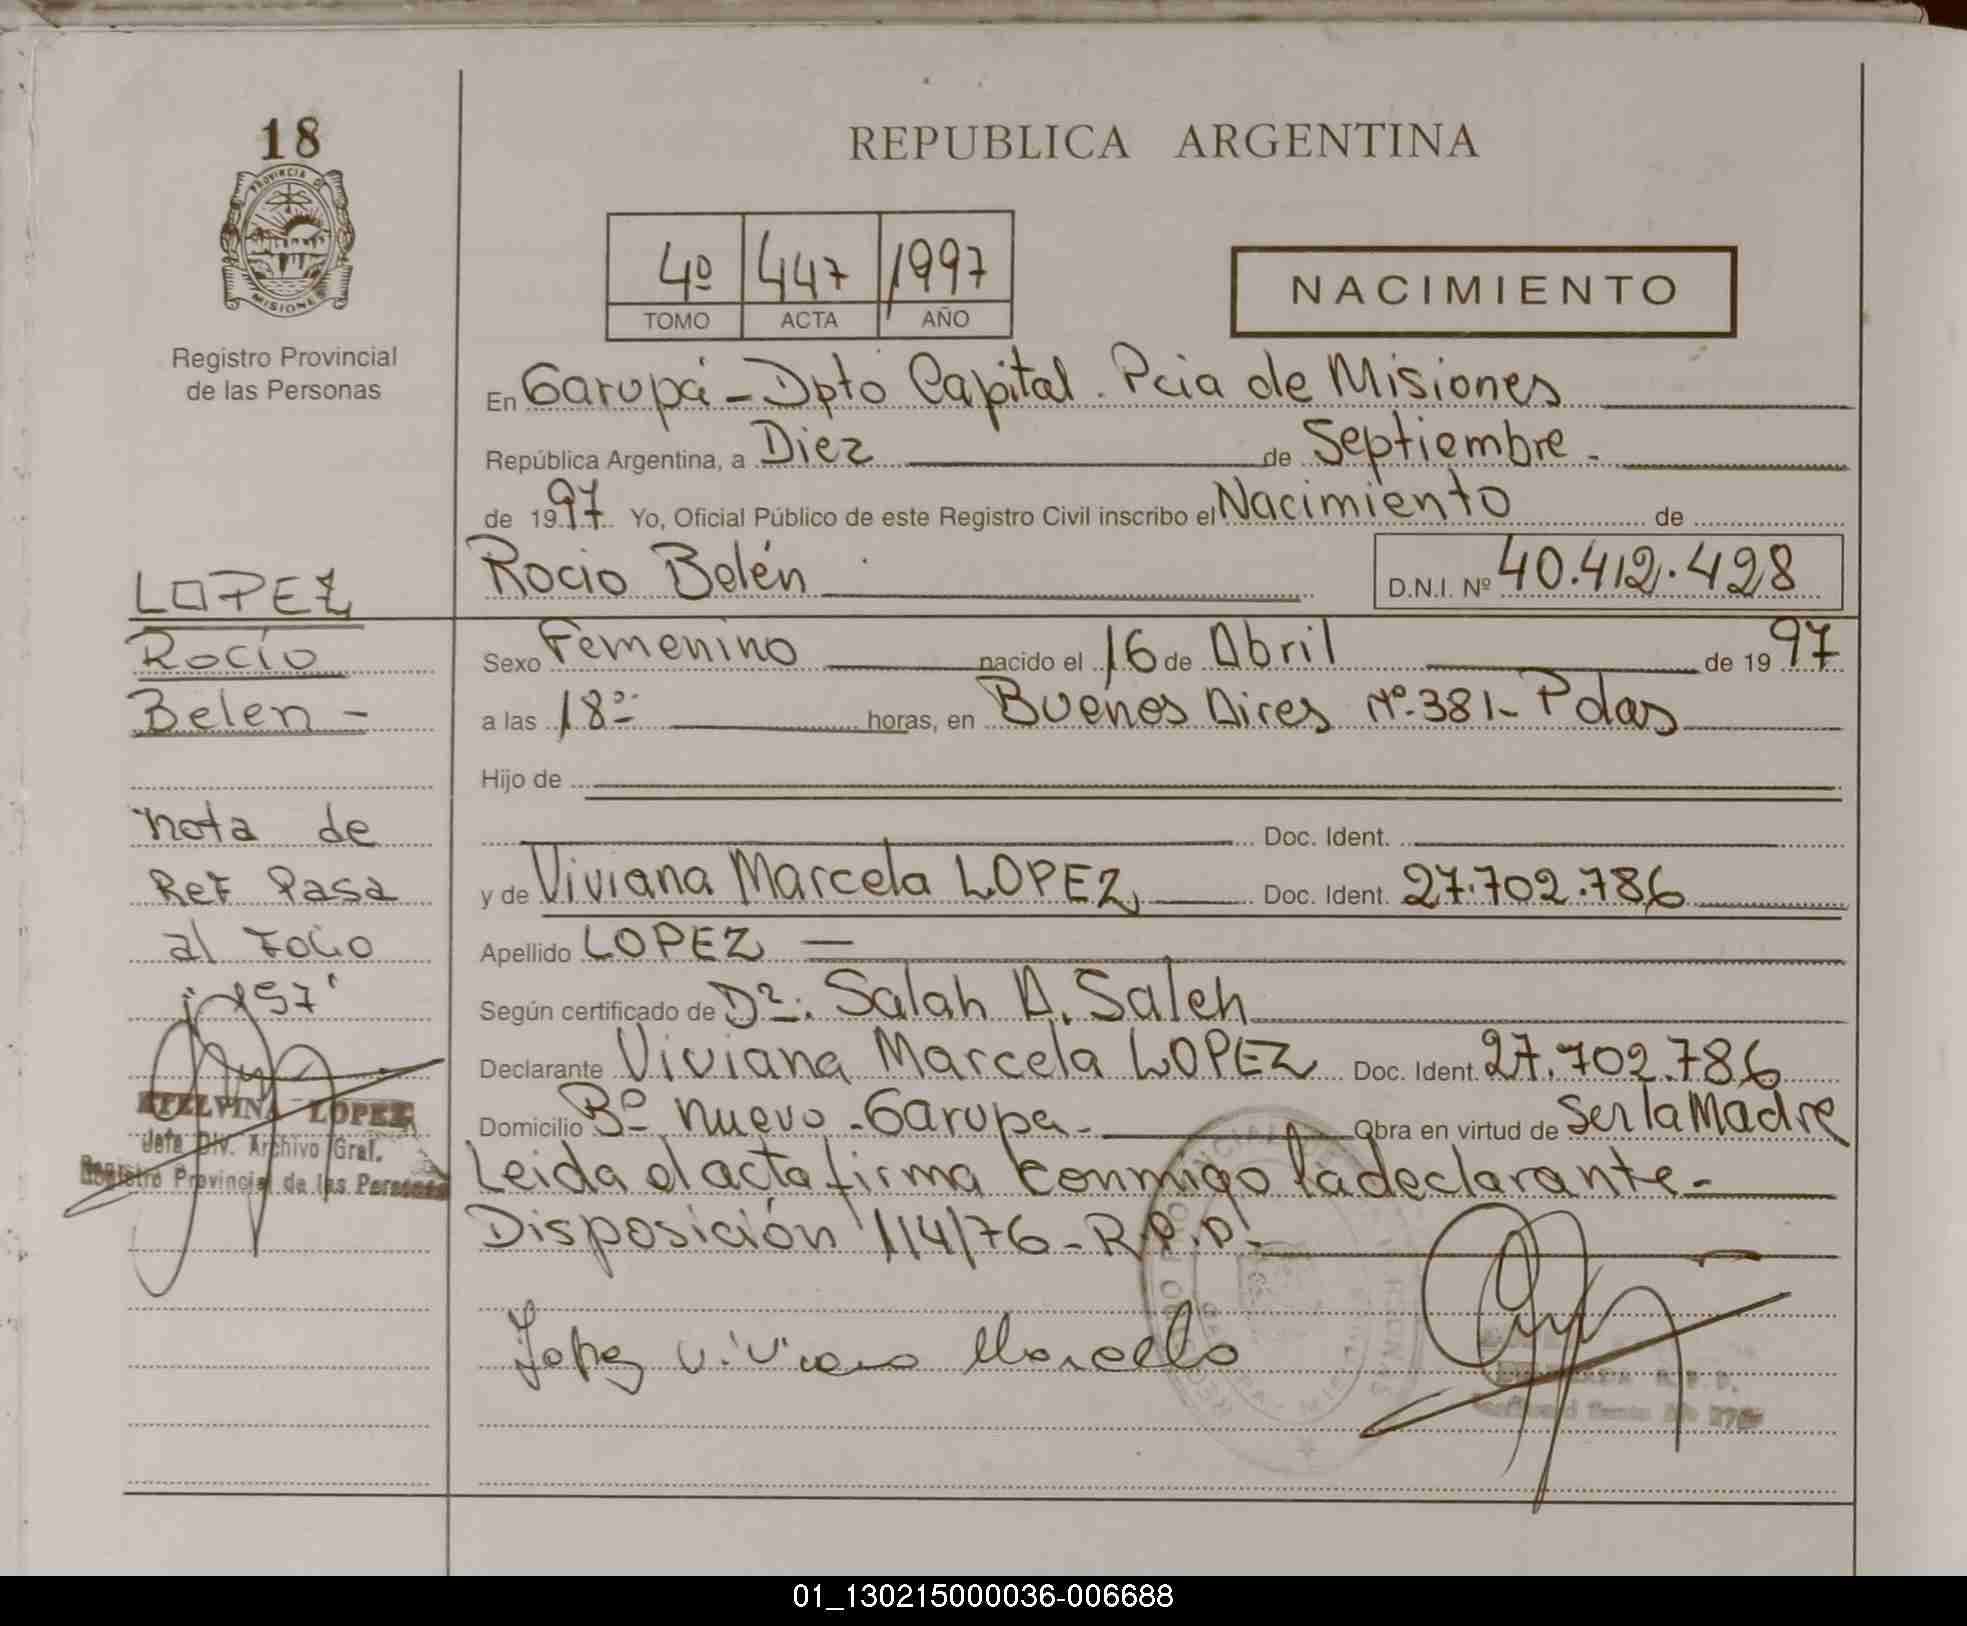 18
PROVINCIA DE
MISIONES
Registro Provincial
de las Personas
REPUBLICA ARGENTINA
4º 447 1997
TOMO ACTA AÑO
NACIMIENTO
En Garupá - Dpto Capital. Pcia de Misiones
República Argentina, a Diez de Septiembre.
de 1997 Yo, Oficial Público de este Registro Civil inscribo el Nacimiento de
Rocio Belén D.N.I. Nº 40.412.428
Sexo Femenino nacido el 16 de Abril de 1997
a las 18 horas, en Buenos Aires Nº 381- Pdas
Hijo de
Doc. Ident.
y de Viviana Marcela LOPEZ Doc. Ident. 27.702.786
Apellido LOPEZ —
Según certificado de Dr. Salah A. Saleh
Declarante Viviana Marcela LOPEZ Doc. Ident. 27.702.786
Domicilio Bº nuevo - Garupa - Obra en virtud de Ser la Madre
Leida el acta firma conmigo la declarante -
Disposición 114/76 - R.P.P.
Lopez Viviana Marcela
LOPEZ
Rocío
Belen -
nota de
Ref Pasa
al Folio
197
ETELVINA LOPEZ
Jefa Div. Archivo Gral.
Registro Provincial de las Personas
01_130215000036-006688